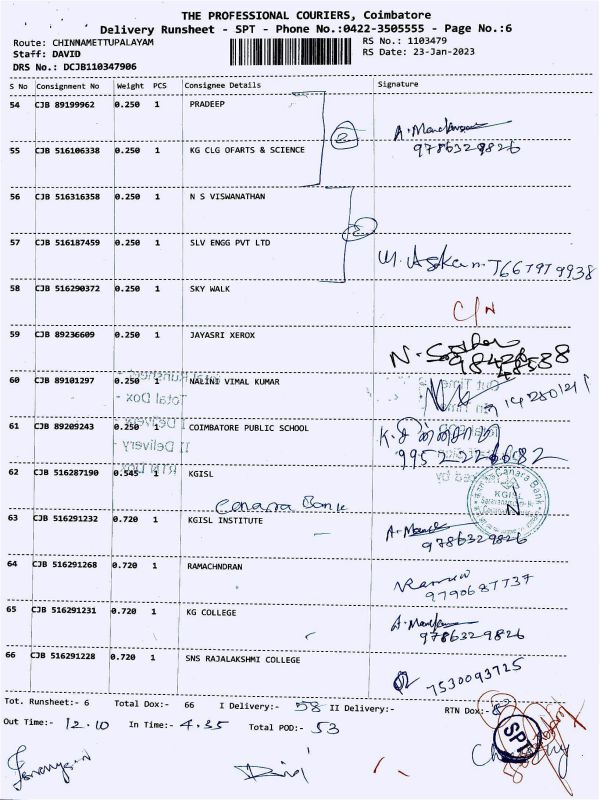 THE PROFESSIONAL COURIERS, Coimbatore
Delivery Runsheet - SPT - Phone No.:0422-3505555 - Page No.:6
Route: CHINNAMETTUPALAYAM RS No.: 1103479
Staff: DAVID RS Date: 23-Jan-2023
DRS No.: DCJB110347906
S No Consignment No Weight PCS Consignee Details Signature
54 CJB 89199962 0.250 1 PRADEEP
2
9786329826
55 CJB 516106338 0.250 1 KG CLG OFARTS & SCIENCE
56 CJB 516316358 0.250 1 N S VISWANATHAN
2
57 CJB 516187459 0.250 1 SLV ENGG PVT LTD
58 CJB 516290372 0.250 1 SKY WALK
C/N
59 CJB 89236609 0.250 1 JAYASRI XEROX
60 CJB 89101297 0.250 1 NALINI VIMAL KUMAR
61 CJB 89209243 0.250 1 COIMBATORE PUBLIC SCHOOL
62 CJB 516287190 0.545 1 KGISL
Canara Bank
Canara Bank
KGISL
63 CJB 516291232 0.720 1 KGISL INSTITUTE
9786329826
64 CJB 516291268 0.720 1 RAMACHNDRAN
9790687737
65 CJB 516291231 0.720 1 KG COLLEGE
9786329826
66 CJB 516291228 0.720 1 SNS RAJALAKSHMI COLLEGE
7530093725
Tot. Runsheet:- 6 Total Dox:- 66 I Delivery:- 58 II Delivery:- RTN Dox:-
Out Time:- 12.10 In Time:- 4.35 Total POD:- 53
SPT